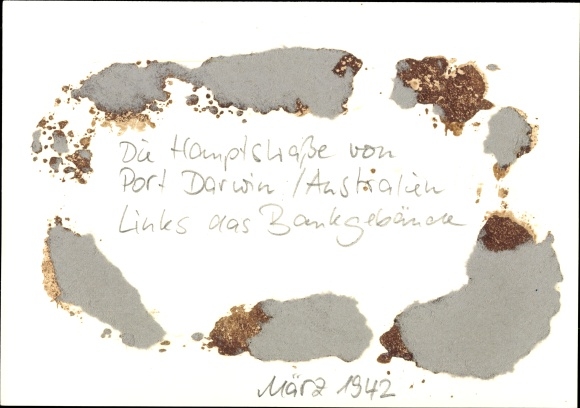 Die Hauptstraße von
Port Darwin / Australien
Links das Bankgebäude
März 1942